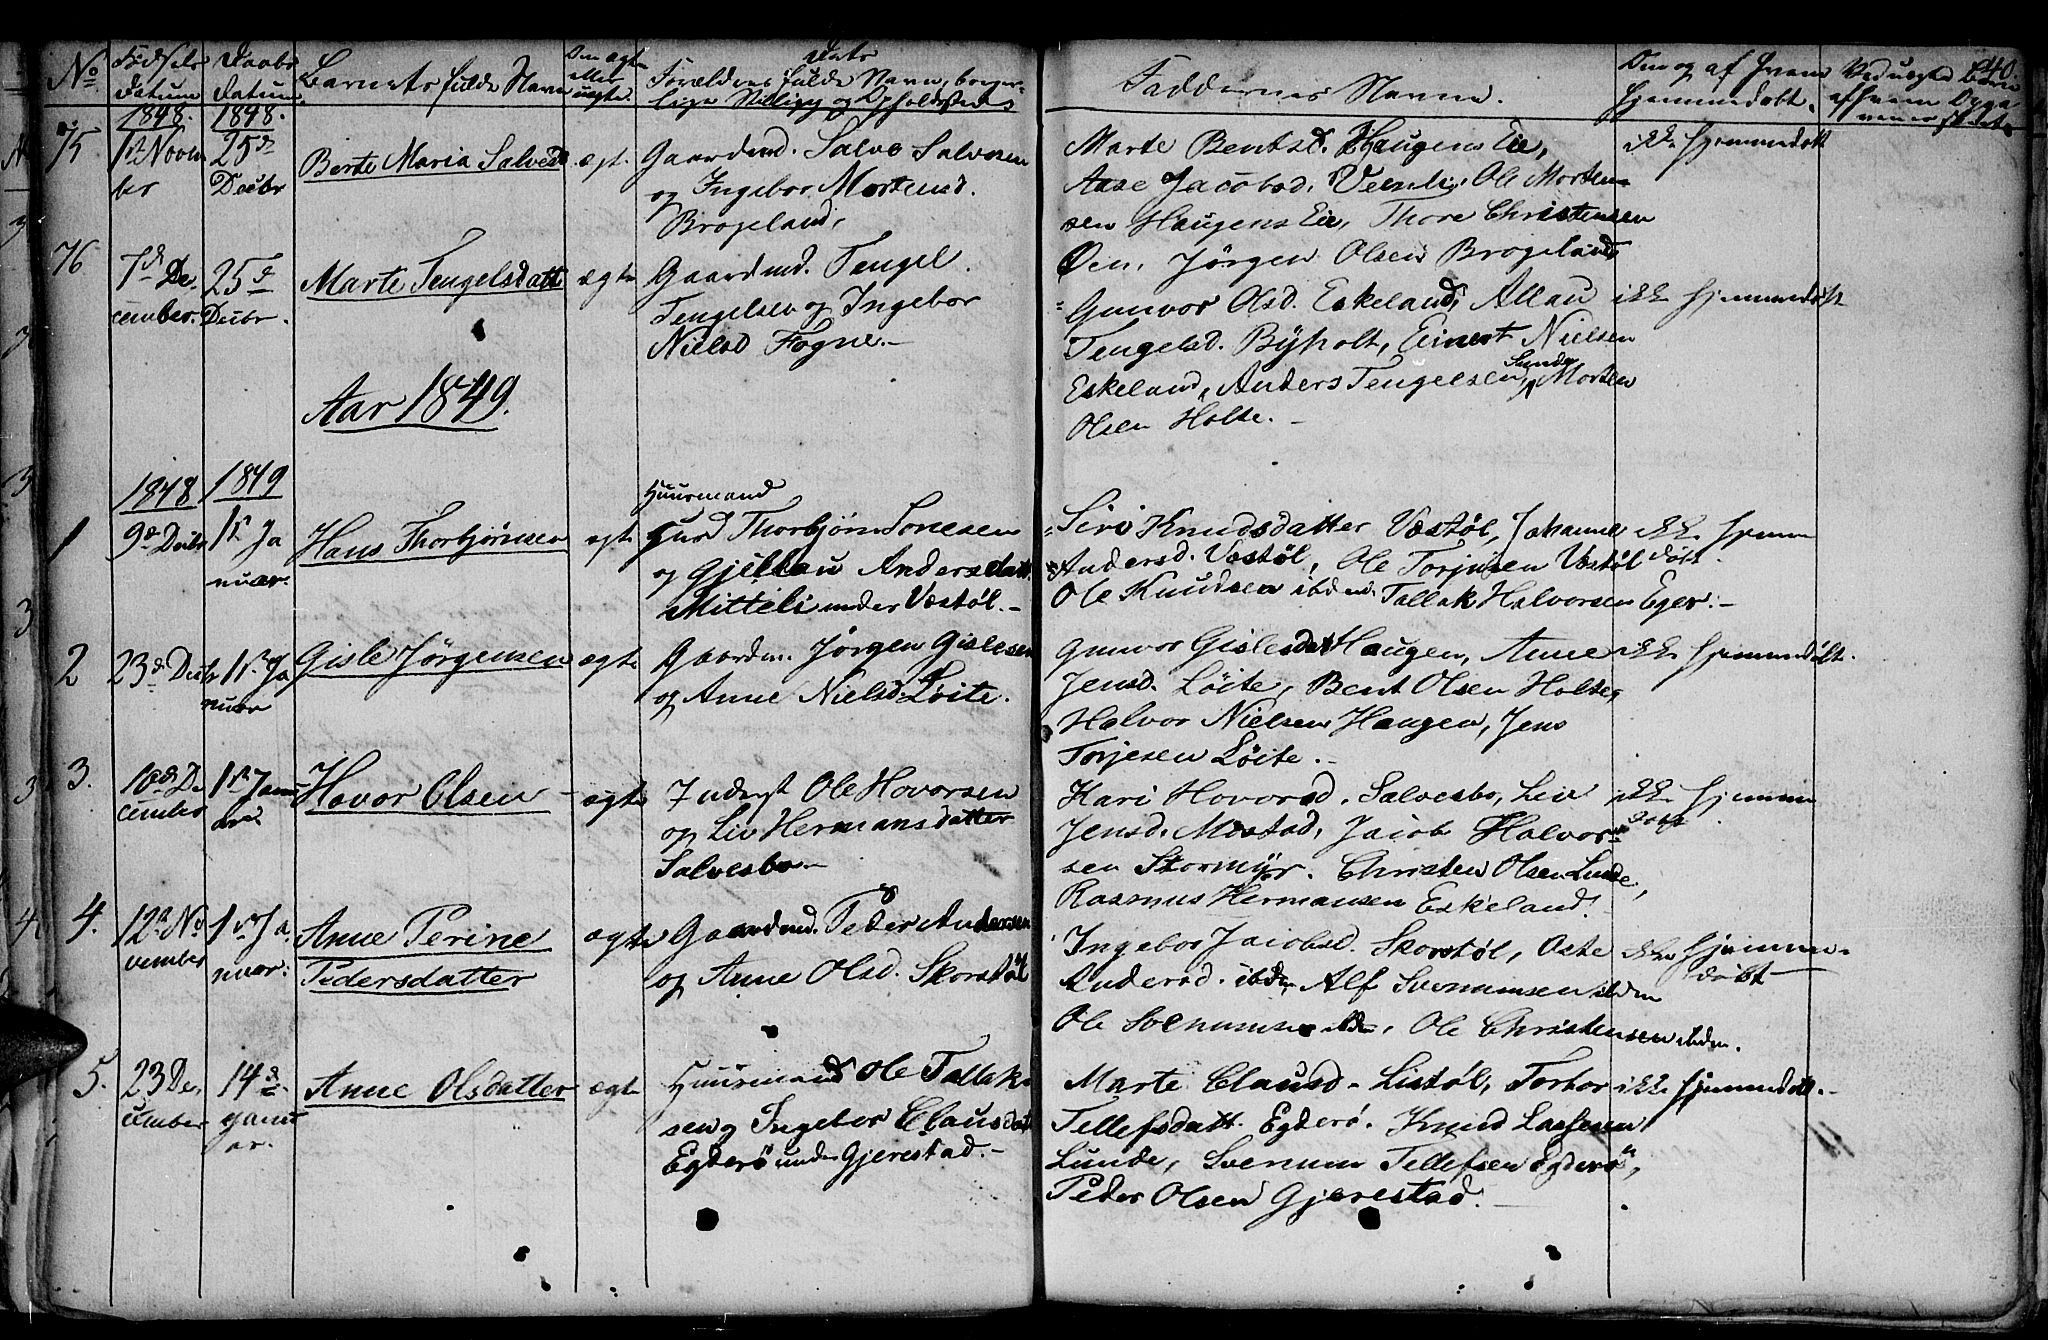 No
Fødsels
Datum
Daabs
Datum
Barnets fulde Navn
Om ægte
eller
uægte.
Forældrenes fulde Navn, borger-
lige Stilling og Opholdssteds
Faddernes Navne.
Om og af hvem
hjemmedøbt.
Ved uægte Børn
af hvem
40.
1848.
1848.
75
1ste Novem
ber
25de
Decbr
Berte Maria Salvesd
ægt.
Gaardmd. Salve Salvesen
og Ingebor Mortensd.
Brogeland,
Marte Bentsd. Haugens Eie,
Aase Jacobsd. Ole Morten-
sen Haugens Eie, Thore Christensen
Øen, Jørgen Olsen Brogeland
ikke hjemmedøbt
76
7de De
cember.
25de
Decbr.
Marte Tengelsdatt
ægte
Gaardmd. Tengel
Tengelsen og Ingebor
Nielsd Fogne.-
Gunvor Olsd. Eskeland, Allau
Tengelsd. Byholt, Einert Nielsen
Eskeland, Anders Tengelsen Sunde, Morten
Olsen Holte. -
ikke hjemmedøbt
Aar 1849.
1848
1849
1
9de Decbr
1ste Ja
nuar.
Hans Thorbjørnsen
ægte
Huusmand
Thorbjørn Sonesen
og Gjellau Andersdatt.
Mitteli under Vestøl.-
Siri Knudsdatter Vestøl, Johanne
Andersd. Vestøl, Ole Torjusen Vestøl
Ole Knudsen ibden, Tallak Halvorsen Eger.-
ikke hjemme
døbt.
2
23de Decbr
1ste Ja
nuar
Gisle Jørgensen
ægte
Gaardm. Jørgen Gislesen
og Anne Nielsd Løite.
Gunvor Gislesdatt Haugen, Anne
Jensd. Løite, Bent Olsen Holte,
Halvor Nielsen Haugen, Jens
Torjesen Løite.-
ikke hjemmedøbt.
3.
10de De
cember
1ste Janu
ar
Hovor Olsen
ægte
Inderst Ole Hovorsen
og Liv Hermansdatter
Salvesbo-
Kari Hovorsd. Salvesbo, Liv
Jensd. Mostad, Jacob Halvor-
sen Stormyr. Christen Olsen Lunde,
Rasmus Hermansen Eskeland.
ikke hjemme
døbt.
4.
12te No
vember
1ste Ja
nuar.
Anne Perine
Pedersdatter
ægte
Gaardmd. Peder Andersen
og Anne Olsd. Skorstøl
Ingebor Jacobsd. Skorstøl, Aste
Andersd. ibden, Alf Svenumsen ibden
Ole Svenumsen ibd. Ole Christensen ibden.
ikke hjemme-
døbt
5.
23 De
cember
14de
Janu
ar.
Anne Olsdatter
ægte
Huusmand Ole Tallak
sen og Ingebor Clausdat
Egderø under Gjerestad.-
Marte Clausd - Listøl, Torbor
Tellefsdatt. Egderø. Knud Lassesen
Lunde, Svenum Tellefsen Egderø,
Peder Olsen Gjerestad.
ikke hjemmedøbt.-